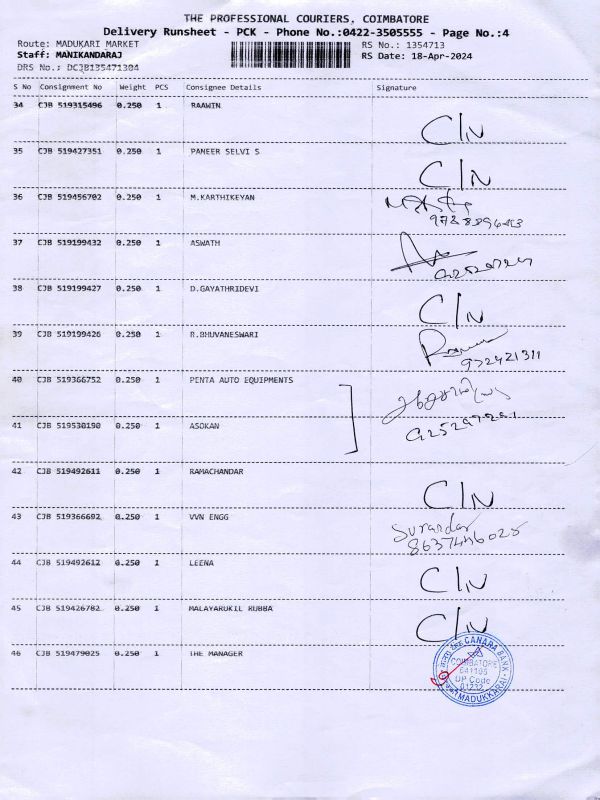 THE PROFESSIONAL COURIERS, COIMBATORE
Delivery Runsheet - PCK - Phone No.:0422-3505555 - Page No.:4
Route: MADUKARI MARKET RS No.: 1354713
Staff: MANIKANDARAJ RS Date: 18-Apr-2024
DRS No.: DCJB135471304
S No Consignment No Weight PCS Consignee Details Signature
34 CJB 519315496 0.250 1 RAAWIN C/N
35 CJB 519427351 0.250 1 PANEER SELVI S C/N
36 CJB 519456702 0.250 1 M.KARTHIKEYAN
37 CJB 519199432 0.250 1 ASWATH
38 CJB 519199427 0.250 1 D.GAYATHRIDEVI C/N
39 CJB 519199426 0.250 1 R.BHUVANESWARI
40 CJB 519366752 0.250 1 PENTA AUTO EQUIPMENTS
41 CJB 519530190 0.250 1 ASOKAN
42 CJB 519492611 0.250 1 RAMACHANDAR C/N
43 CJB 519366692 0.250 1 VVN ENGG
8637446025
44 CJB 519492612 0.250 1 LEENA C/N
45 CJB 519426782 0.250 1 MALAYARUKIL RUBBA C/N
46 CJB 519479025 0.250 1 THE MANAGER
CANARA BANK
COIMBATORE
641105
DP Code
MADUKKARAI